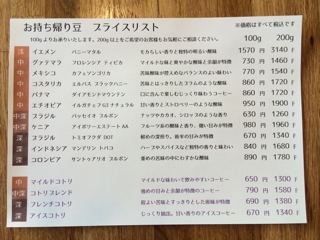 お持ち帰り豆 プライスリスト
※価格はすべて税込です
100gよりお承りいたします。200g以上をご希望のお客様もお気軽にご相談ください。
100g 200g
浅 イエメン バニーマタル モカらしい香りと独特の明るい酸味 1570 円 3140 円
中 グァテマラ フロレンシア ティピカ マイルドな味と爽やかな酸味と余韻が特徴 730 円 1460 円
中 メキシコ カフェソンゴリカ 苦味酸味が控えめなバランスのよい味わい 770 円 1540 円
中 コスタリカ エルバス ブラックハニー 苦味と酸味のバランスがとれたコーヒー 870 円 1740 円
中 パナマ ダイアモンドマウンテン 口に含んで優しくひろがる酸味 860 円 1720 円
中 エチオピア イルガチェフG1 ナチュラル 甘い香りとストロベリーのような酸味 950 円 1900 円
中深 ブラジル パッセイオ ブルボン ナッツやカカオ、シロップのような余韻 630 円 1260 円
中深 ケニア アイボリーエステート AA フルーツ系の酸味と香り、強い甘みが特徴 980 円 1960 円
深 ブラジル トミオフクダ DOT 柳めの深煎り、後味の甘みが特徴 670 円 1340 円
深 インドネシア マンデリン トバコ ハーブやスパイスなど独特の香りと味わい 840 円 1680 円
深 コロンビア サントゥアリオ ブルボン 重めの苦味の中にもすかな酸味 890 円 1780 円
中 マイルドコトリ マイルドな味わいで飲みやすいコーヒー 650 円 1300 円
中深 コトリブレンド 強めの甘みと余韻が特徴のコーヒー 790 円 1580 円
深 フレンチコトリ 程よい苦味とすっきりとした後味が特徴 690 円 1380 円
深 アイスコトリ じっくり抽出、甘い香りのアイスコーヒー 670 円 1340 円